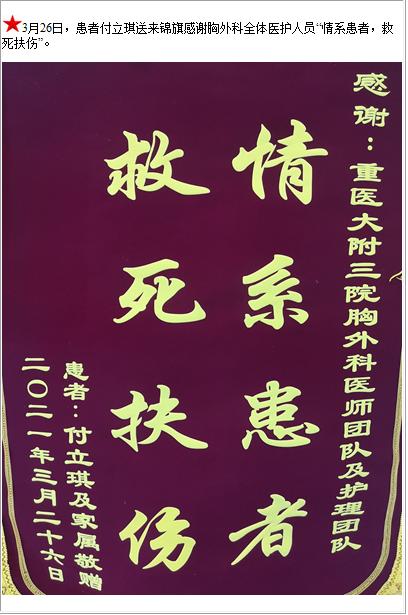 ★3月26日，患者付立琪送来锦旗感谢胸外科全体医护人员“情系患者，救
死扶伤”。
感谢：重医大附三院胸外科医师团队及护理团队
情系患者
救死扶伤
患者：付立琪及家属敬赠
二〇二一年三月二十六日